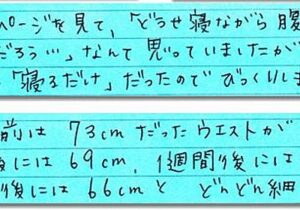 ページを見て、「どうせ寝ながら腹
だろう…」なんて思っていましたが
「寝るだけ」だったのでびっくりしま
前は 73cm だったウエストが
後には 69cm、1週間後には
後には 66cmと どんどん細